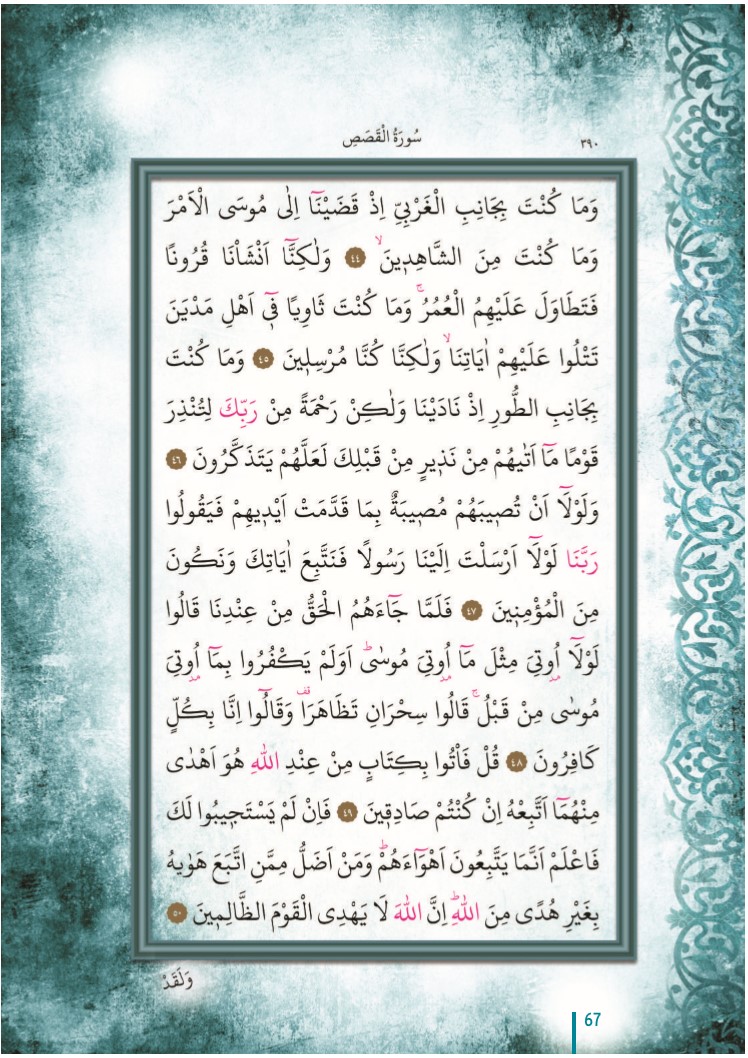 سُورَةُ الْقَصَصِ ٣٩٠
وَمَا كُنْتَ بِجَانِبِ الْغَرْبِيِّ اِذْ قَضَيْنَٓا اِلٰى مُوسَى الْاَمْرَ
وَمَا كُنْتَ مِنَ الشَّاهِد۪ينَۙ ٤٤ وَلٰكِنَّٓا اَنْشَأْنَا قُرُونًا
فَتَطَاوَلَ عَلَيْهِمُ الْعُمُرُۚ وَمَا كُنْتَ ثَاوِيًا ف۪ٓي اَهْلِ مَدْيَنَ
تَتْلُوا عَلَيْهِمْ اٰيَاتِنَاۙ وَلٰكِنَّا كُنَّا مُرْسِل۪ينَ ٤٥ وَمَا كُنْتَ
بِجَانِبِ الطُّورِ اِذْ نَادَيْنَا وَلٰكِنْ رَحْمَةً مِنْ رَبِّكَ لِتُنْذِرَ
قَوْمًا مَٓا اَتٰيهُمْ مِنْ نَذ۪يرٍ مِنْ قَبْلِكَ لَعَلَّهُمْ يَتَذَكَّرُونَ ٤٦
وَلَوْلَٓا اَنْ تُص۪يبَهُمْ مُص۪يبَةٌ بِمَا قَدَّمَتْ اَيْد۪يهِمْ فَيَقُولُوا
رَبَّنَا لَوْلَٓا اَرْسَلْتَ اِلَيْنَا رَسُولًا فَنَتَّبِعَ اٰيَاتِكَ وَنَكُونَ
مِنَ الْمُؤْمِن۪ينَ ٤٧ فَلَمَّا جَٓاءَهُمُ الْحَقُّ مِنْ عِنْدِنَا قَالُوا
لَوْلَٓا اُو۫تِيَ مِثْلَ مَٓا اُو۫تِيَ مُوسٰىۜ اَوَلَمْ يَكْفُرُوا بِمَٓا اُو۫تِيَ
مُوسٰى مِنْ قَبْلُۚ قَالُوا سِحْرَانِ تَظَاهَرَا۠ وَقَالُٓوا اِنَّا بِكُلٍّ
كَافِرُونَ ٤٨ قُلْ فَأْتُوا بِكِتَابٍ مِنْ عِنْدِ اللّٰهِ هُوَ اَهْدٰى
مِنْهُمَٓا اَتَّبِعْهُ اِنْ كُنْتُمْ صَادِق۪ينَ ٤٩ فَاِنْ لَمْ يَسْتَج۪يبُوا لَكَ
فَاعْلَمْ اَنَّمَا يَتَّبِعُونَ اَهْوَٓاءَهُمْۜ وَمَنْ اَضَلُّ مِمَّنِ اتَّبَعَ هَوٰيهُ
بِغَيْرِ هُدًى مِنَ اللّٰهِۜ اِنَّ اللّٰهَ لَا يَهْدِي الْقَوْمَ الظَّالِم۪ينَ ٥٠
وَلَقَدْ
67